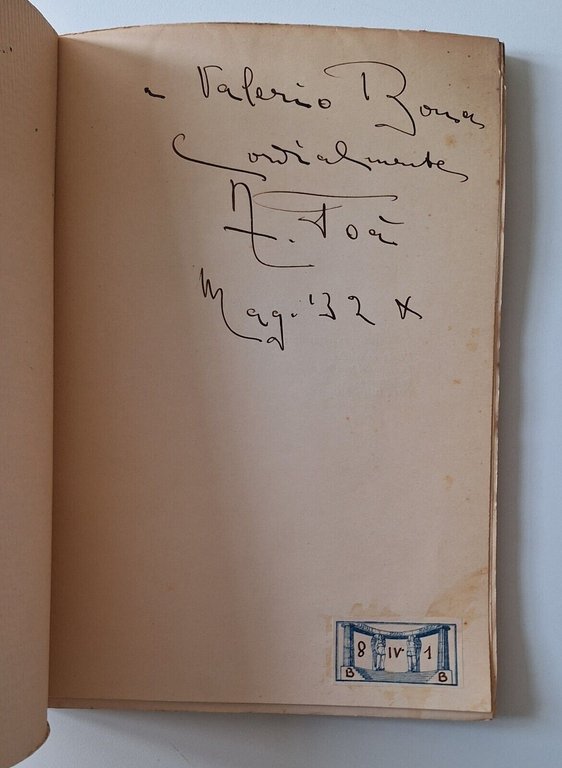 a Valerio Bona
Cordialmente
A. Foà
Mag. '32 X
8 IV 1
B B